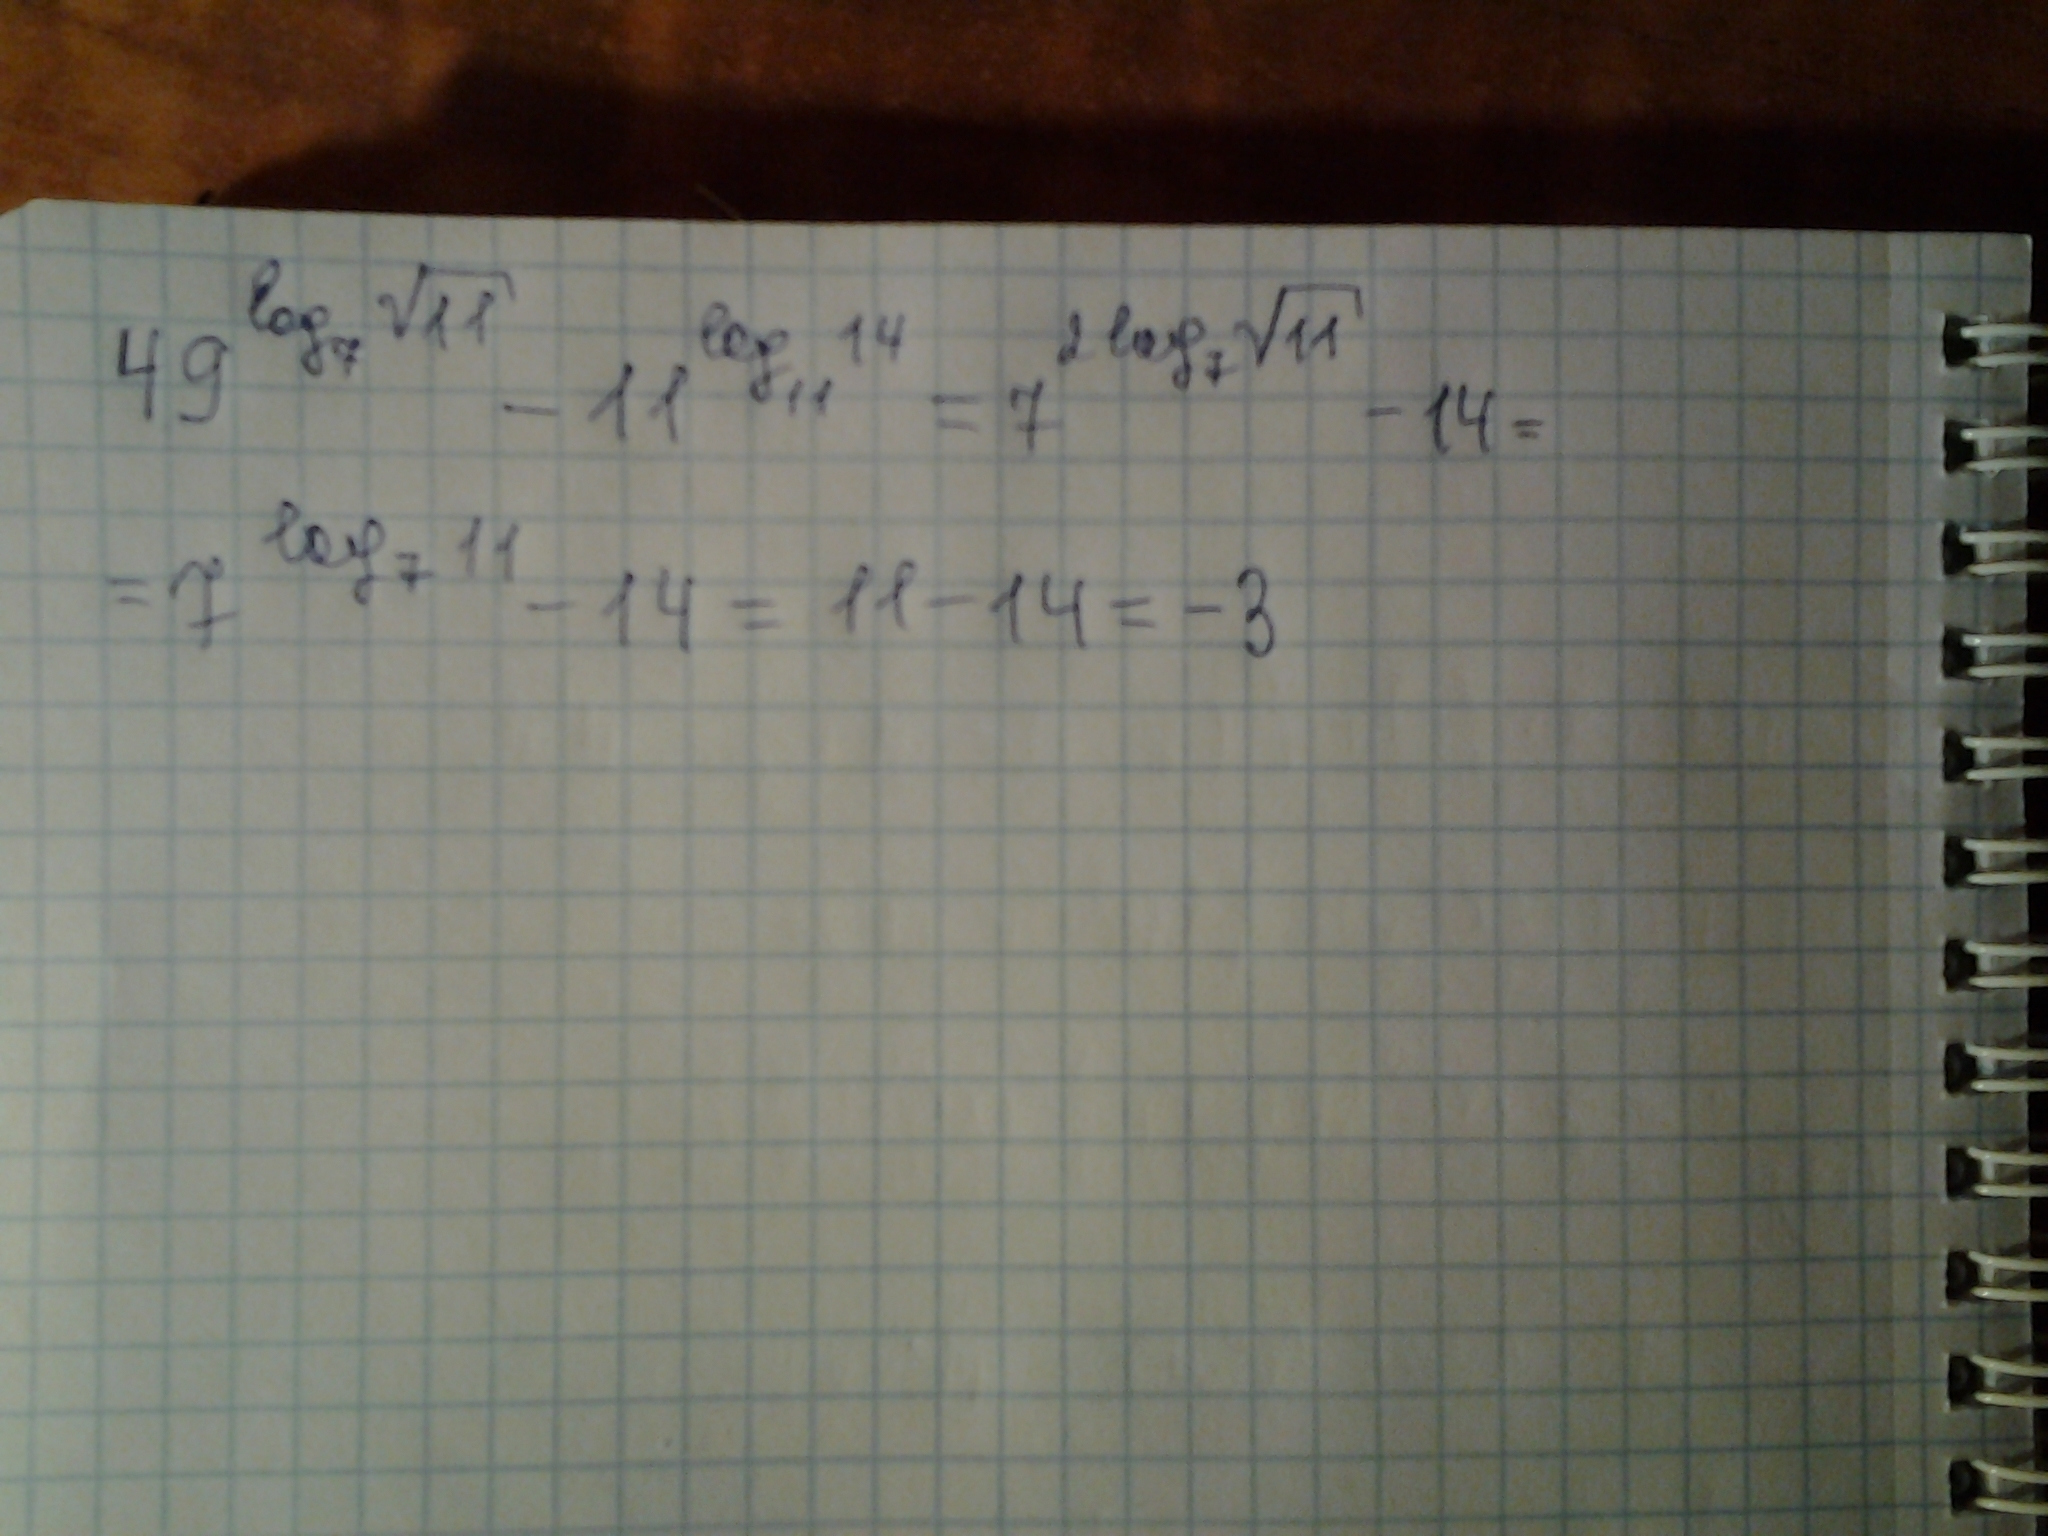 49^{log_7 √11} - 11^{log_{11} 14} = 7^{2log_7 √11} - 14 =
= 7^{log_7 11} - 14 = 11 - 14 = -3